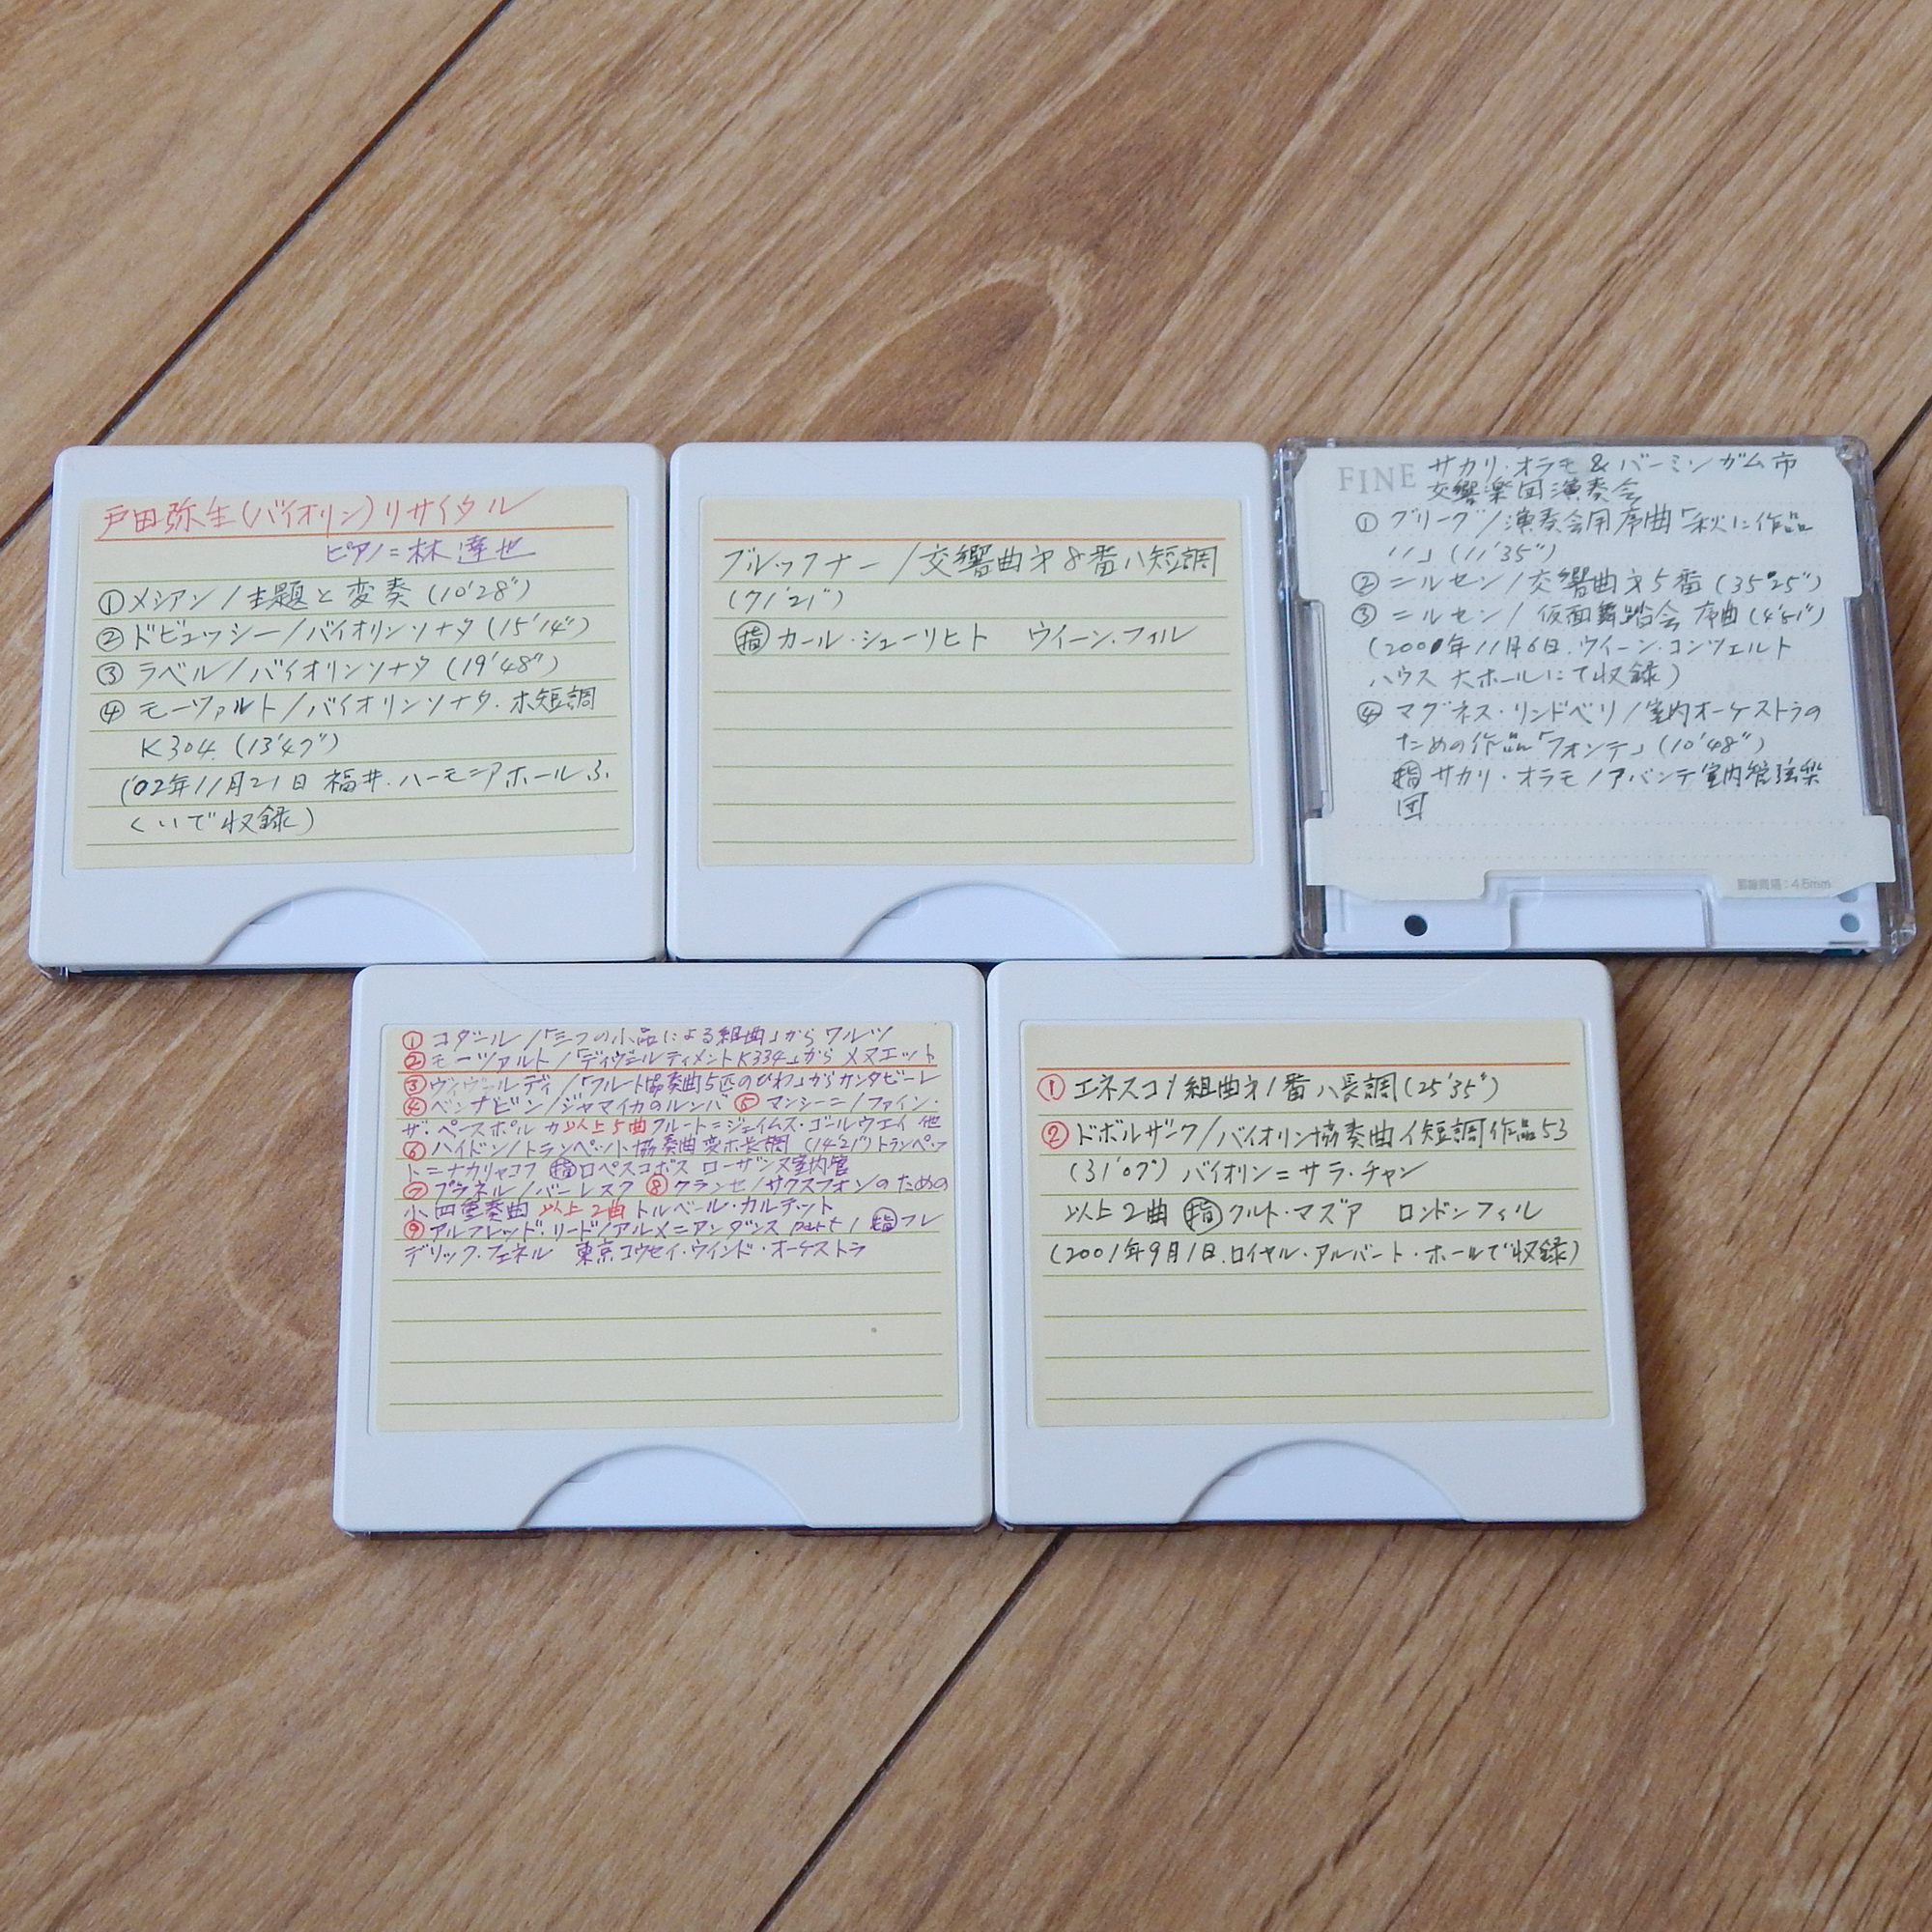 戸田弥生(バイオリン)リサイタル
ピアノ=林達也
①メシアン/主題と変奏(10'28")
②ドビュッシー/バイオリンソナタ(15'14")
③ラベル/バイオリンソナタ(19'48")
④モーツァルト/バイオリンソナタ.ホ短調
K304.(13'47")
('02年11月21日 福井.ハーモニアホールふ
くいで収録)
ブルックナー/交響曲才8番ハ短調
(71'21")
指 カール・シューリヒト ウィーン.フィル
FINE
サカリ・オラモ&バーミンガム市
交響楽団演奏会
①グリーグ/演奏会用序曲「秋に作品
11」(11'35")
②ニルセン/交響曲才5番(35'25")
③ニルセン/仮面舞踏会序曲(4'81")
(2000年11月6日.ウィーン・コンツェルト
ハウス大ホールにて収録)
④マグネス・リンドベリ/室内オーケストラの
ための作品「フォンテ」(10'48")
指 サカリ・オラモ/アバンテ室内管弦楽
団
罫線間隔:4.5mm
①コダール/「三つの小品による組曲」からワルツ
②モーツァルト/「ディヴェルティメントK334」からメヌエット
③ヴィヴァルディ/「フルート協奏曲5匹のひわ」からカンタビーレ
④ベンナビン/ジャマイカのルンバ ⑤マンシーニ/ファイン・
ザ・ペースポルカ以上5曲フルート=ジェイムス・ゴールウエイ他
⑥ハイドン/トランペット協奏曲変ホ長調(14'21")トランペッ
ト=ナカリャコフ 指 ロペスコボス ローザンヌ室内管
⑦プラネル/バーレスク ⑧クランセ/サクスフォンのための
小四重奏曲 以上2曲トルベール・カルテット
⑨アルフレッド・リード/アルメニアンダンスpart1 指 フレ
デリック・フェネル 東京コウセイ・ウインド・オーケストラ
①エネスコ/組曲才1番ハ長調(25'35")
②ドボルザーク/バイオリン協奏曲イ短調作品53
(31'07")バイオリン=サラ・チャン
以上2曲 指 クルト・マズア ロンドンフィル
(2001年9月1日.ロイヤル・アルバート・ホールで収録)